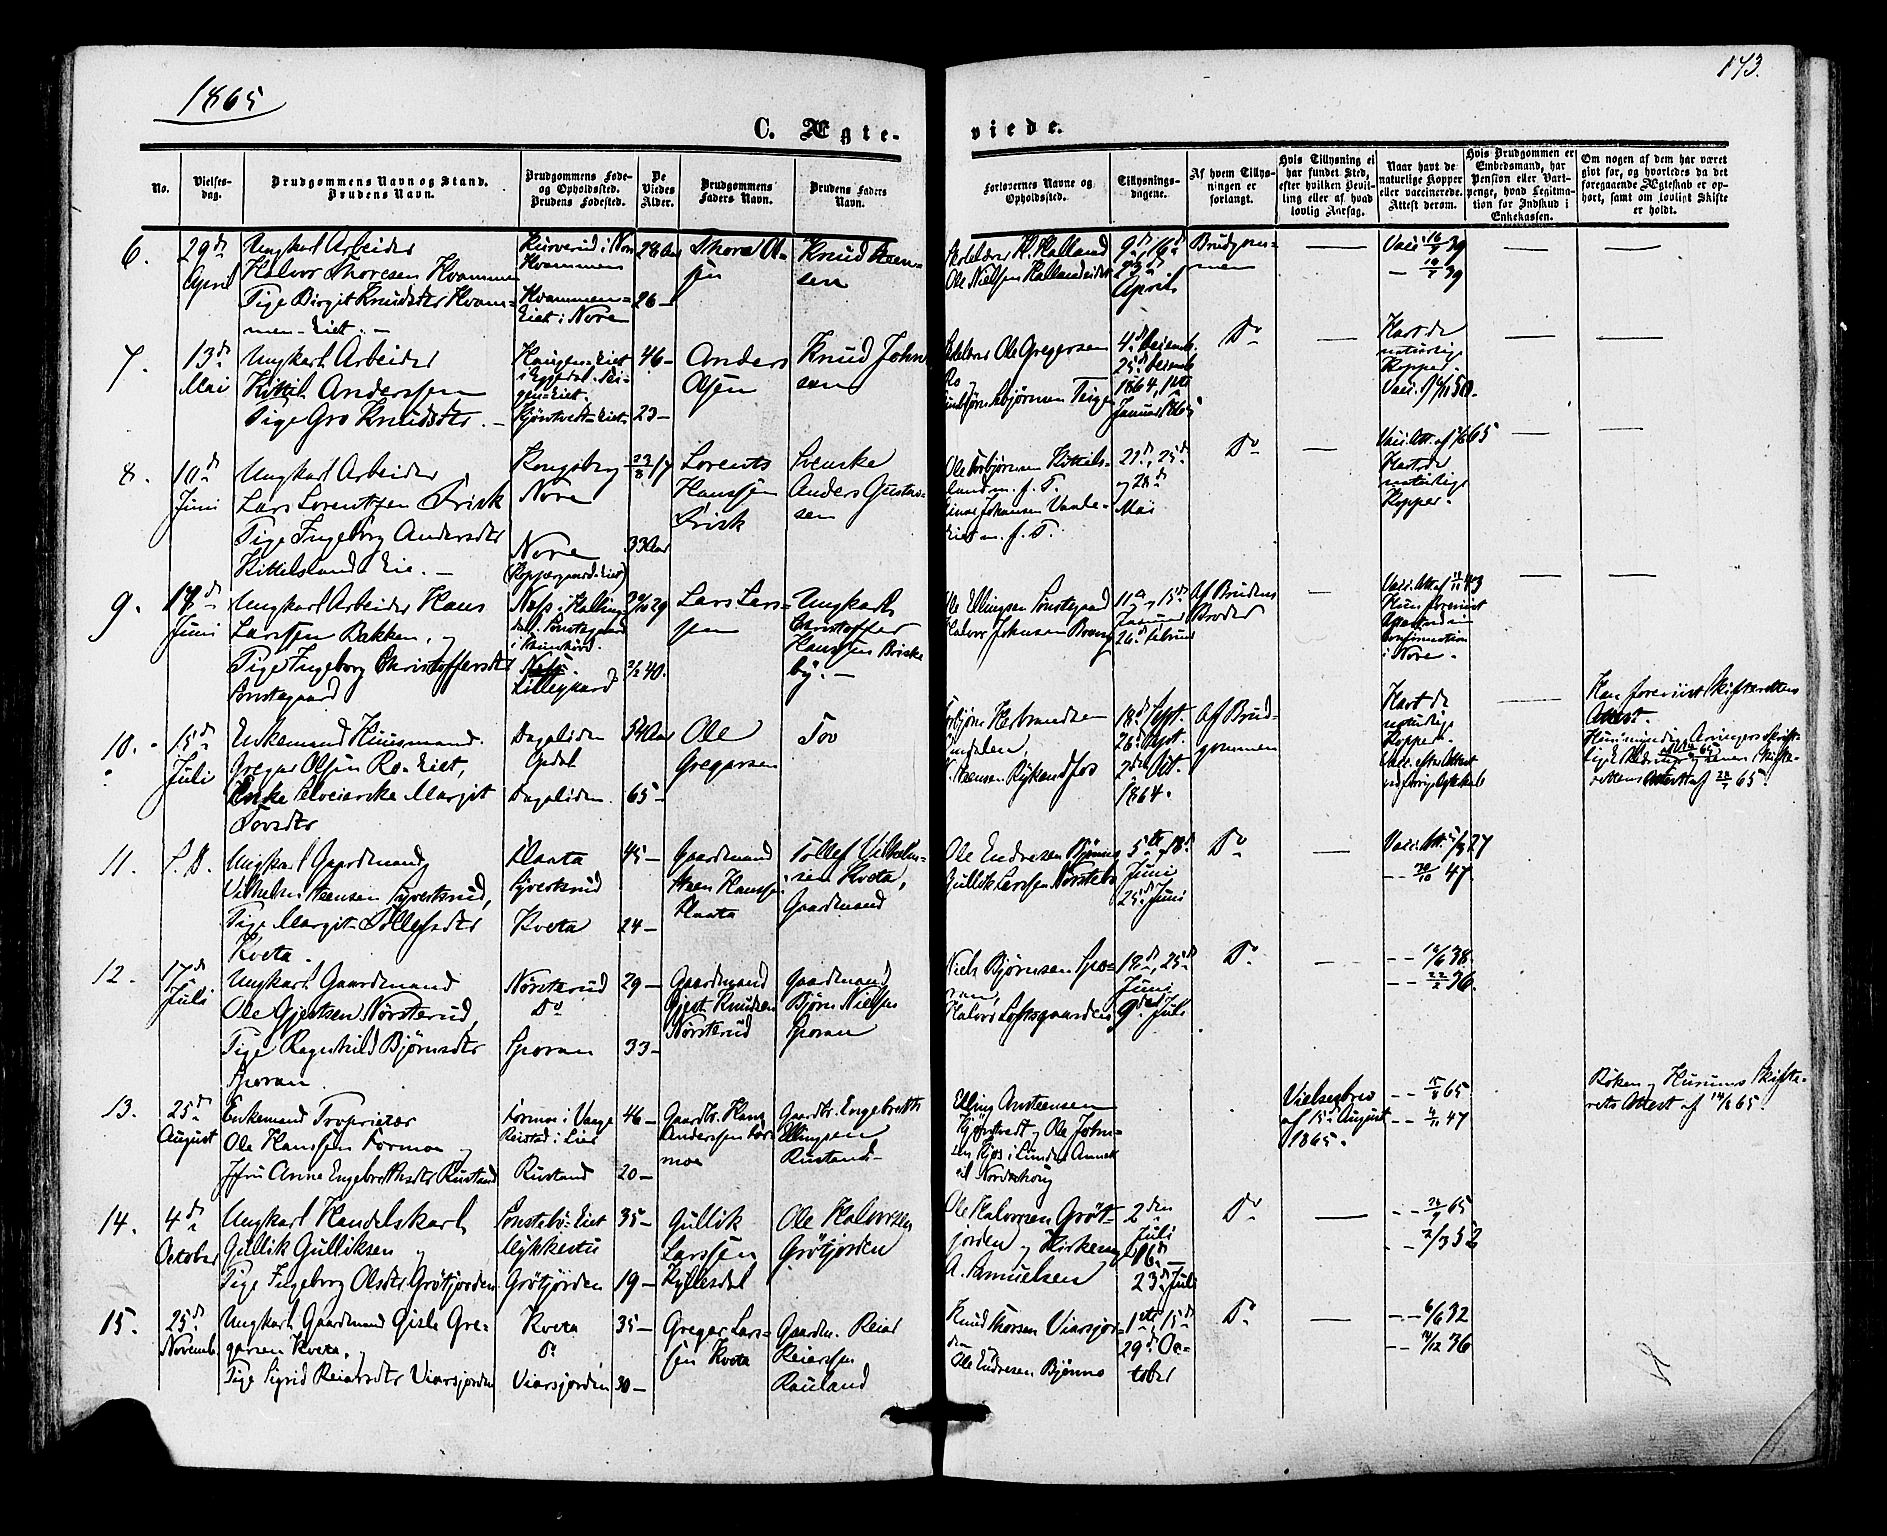 1865
173.
C. Ægte-
viede.
No.
Vielses-
dag.
Brudgommens Navn og Stand.
Brudens Navn.
Brudgommens Føde-
og Opholdssted.
Brudens Fødested.
De
Viedes
Alder.
Brudgommens
Faders Navn.
Brudens Faders
Navn.
Forlovernes Navne og
Opholdssted.
Tillysnings-
dagene.
Af hvem Tillys-
ningen er
forlangt.
Hvis Tillysning ei
har fundet Sted,
efter hvilken Bevil-
ling eller af hvad
lovlig Aarsag.
Naar havt de
naturlige Kopper
eller vaccinerede.
Attest derom.
Hvis Brudgommen er
Embedsmand, har
Pension eller Vart-
penge, hvad Legitima-
tion for Indskud i
Enkekassen.
Om nogen af dem har været
gift før, og hvorledes da det
foregaaende Ægteskab er op-
hørt, samt om lovligt Skifte
er holdt.
6.
29de
April
Ungkarl Arbeider
Halvor Thoresen Kvammen
Pige Birgit Knudsdtr Kvam-
men-Eiet. -
i Nore
Kvammen
Kvammen-
Eiet i Nore
28 Aar
26 -
Thore Ol-
sen
Knud
sen
H. Halland
Ole Nielsen Hallandseiet
9de, 16de
23de
April
Brudgom-
men
Vacc. 16/7 39
7.
13de
Mai
Ungkarl Arbeider
Kittil Anderssen
Pige Gro Knudsdtr. -
Haugen-Eiet
i Eggedal.
Kjøntvedt-Eiet-
46 -
23 -
Anders
Olsen
Knud John-
sen
Ole Gregersen
4de Decemb.
25de Decemb
1864, 1ste
Januar 1865
Do
Havt de
naturlige
Kopper.
8.
10de
Juni
Ungkarl Arbeider
Lars Lorentzen Frisk
Pige Ingeborg Andersdtr
Kittelsland Eie. -
Kongsberg
Nore
Nore
23/8 17
33 Aar
Lorents
Hanssen
Frisk
Svenske
Anders Gustav-
sen
Ole Torbjørnsen Kittils-
land m. f. T.
Johansen
Eiet m. f. T.
21de, 25de
og 28de
Mai
Do
Havt de
naturlige
Kopper.
9.
18de
Juni
Ungkarl Arbeider Hans
Larssen Bakken, og
Pige Ingeborg Christoffersdtr
Tonstegaard
Næss i Halling-
dal.
Næss.
Lillegaard
29
40.
Lars Lars-
sen
Ungkarl
Christoffer
Hanssen Briske-
by. -
Ole Ellingsen Tonstegaard
Halvor Johnsen
11te, 15de
Januar
26de Februar
Af Brudens
Broder
Hun forevist
Attest om
confirmation
i Nore.
10.
15de
Juli
Enkemand Huusmand.
Gregar Olsen Ro-Eiet,
Enke Margit
Torsdtr
Dagaliden
Opdal
Dagaliden.
54 Aar
65 -
Ole
Gregarsen
Tov
18de Sept.
26de Sept.
2den Oct.
1864.
Af Brud-
gommen
Havt de
naturlige
Kopper.
Vacc. efter Attest
Han forevist Skifterettens
Attest.
11.
S. D.
Ungkarl Gaardmand
Vilhelm Steensen Syvertsrud,
Pige Margit Tollefsdtr
Kveta.
Flaata
Syvertsrud
Kveta
45 -
24 -
Gaardmand
Steen Hanssen
Flaata
Tollef Vilhelm-
sen Kveta,
Gaardmand
Ole Endresen Bjønnes
Gullik Larssen Nørstebø
5te, 18de
Juni
25de Juni
Do
27
47
12.
17de
Juli
Ungkarl Gaardmand
Ole Gjertsen Nørsterud,
Pige Ragnhild Bjørnsdtr
Sporan.
Nørsterud
Do
Sporan
29 -
33 -
Gaardmand
Gjert Knudsen
Nørsterud
Gaardmand
Bjørn Nielsen
Sporan
Niels Bjørnsen Spo-
ran,
Halvor Loftsgaarden
18de, 25de
Juni
9de Juli
Do
38.
36.
13.
25de
August
Enkemand Proprietær
Ole Hanssen Formoe og
Jfru Anna Engebrethsdtr Rustand
Formoe i Vaage
Reistad i Lier
Rustand
46 -
20 -
Gaardbr. Hans
Anderssen For-
moe
Gaardbr. Engebreth
Ellingsen
Rustand
Elling Anstensen
Kjøntvedt og Ole John-
sen Kjøs i Lunder Annex
til Norderhoug
Vielsesbrev
af 15de August
1865.
65
47
Røken og Hurums Skifte-
rets Attest af 14/8 65.
14.
4de
October
Ungkarl Handelskarl
Gullik Gulliksen og
Pige Ingeborg Olsdtr Grøtjorden
Tonstebø-Eiet
Mykkestu
Grøtjorden
35 -
19 -
Gullik
Larssen
Kyllesdal
Ole Halvorsen
Grøtjorden
Ole Halvorsen Grøt-
jorden og
A. Samuelsen
2den
Juli
16de
23de Juli
Do
65
52
15.
25de
Novemb.
Ungkarl Gaardmand Gisle Gre-
garsen Kveta, og
Pige Sigrid Reiarsdtr Viarsjorden
Kveta
Do
Viarsjorden
35 -
30 -
Gregar Lars-
sen Kveta
Gaardm. Reiar
Reiarssen
Rauland
Knud Thorsen Viarsjor-
den
Ole Endresen Bjønnes
1ste, 15de
29de Oc-
tober
Do
6/6 32
36